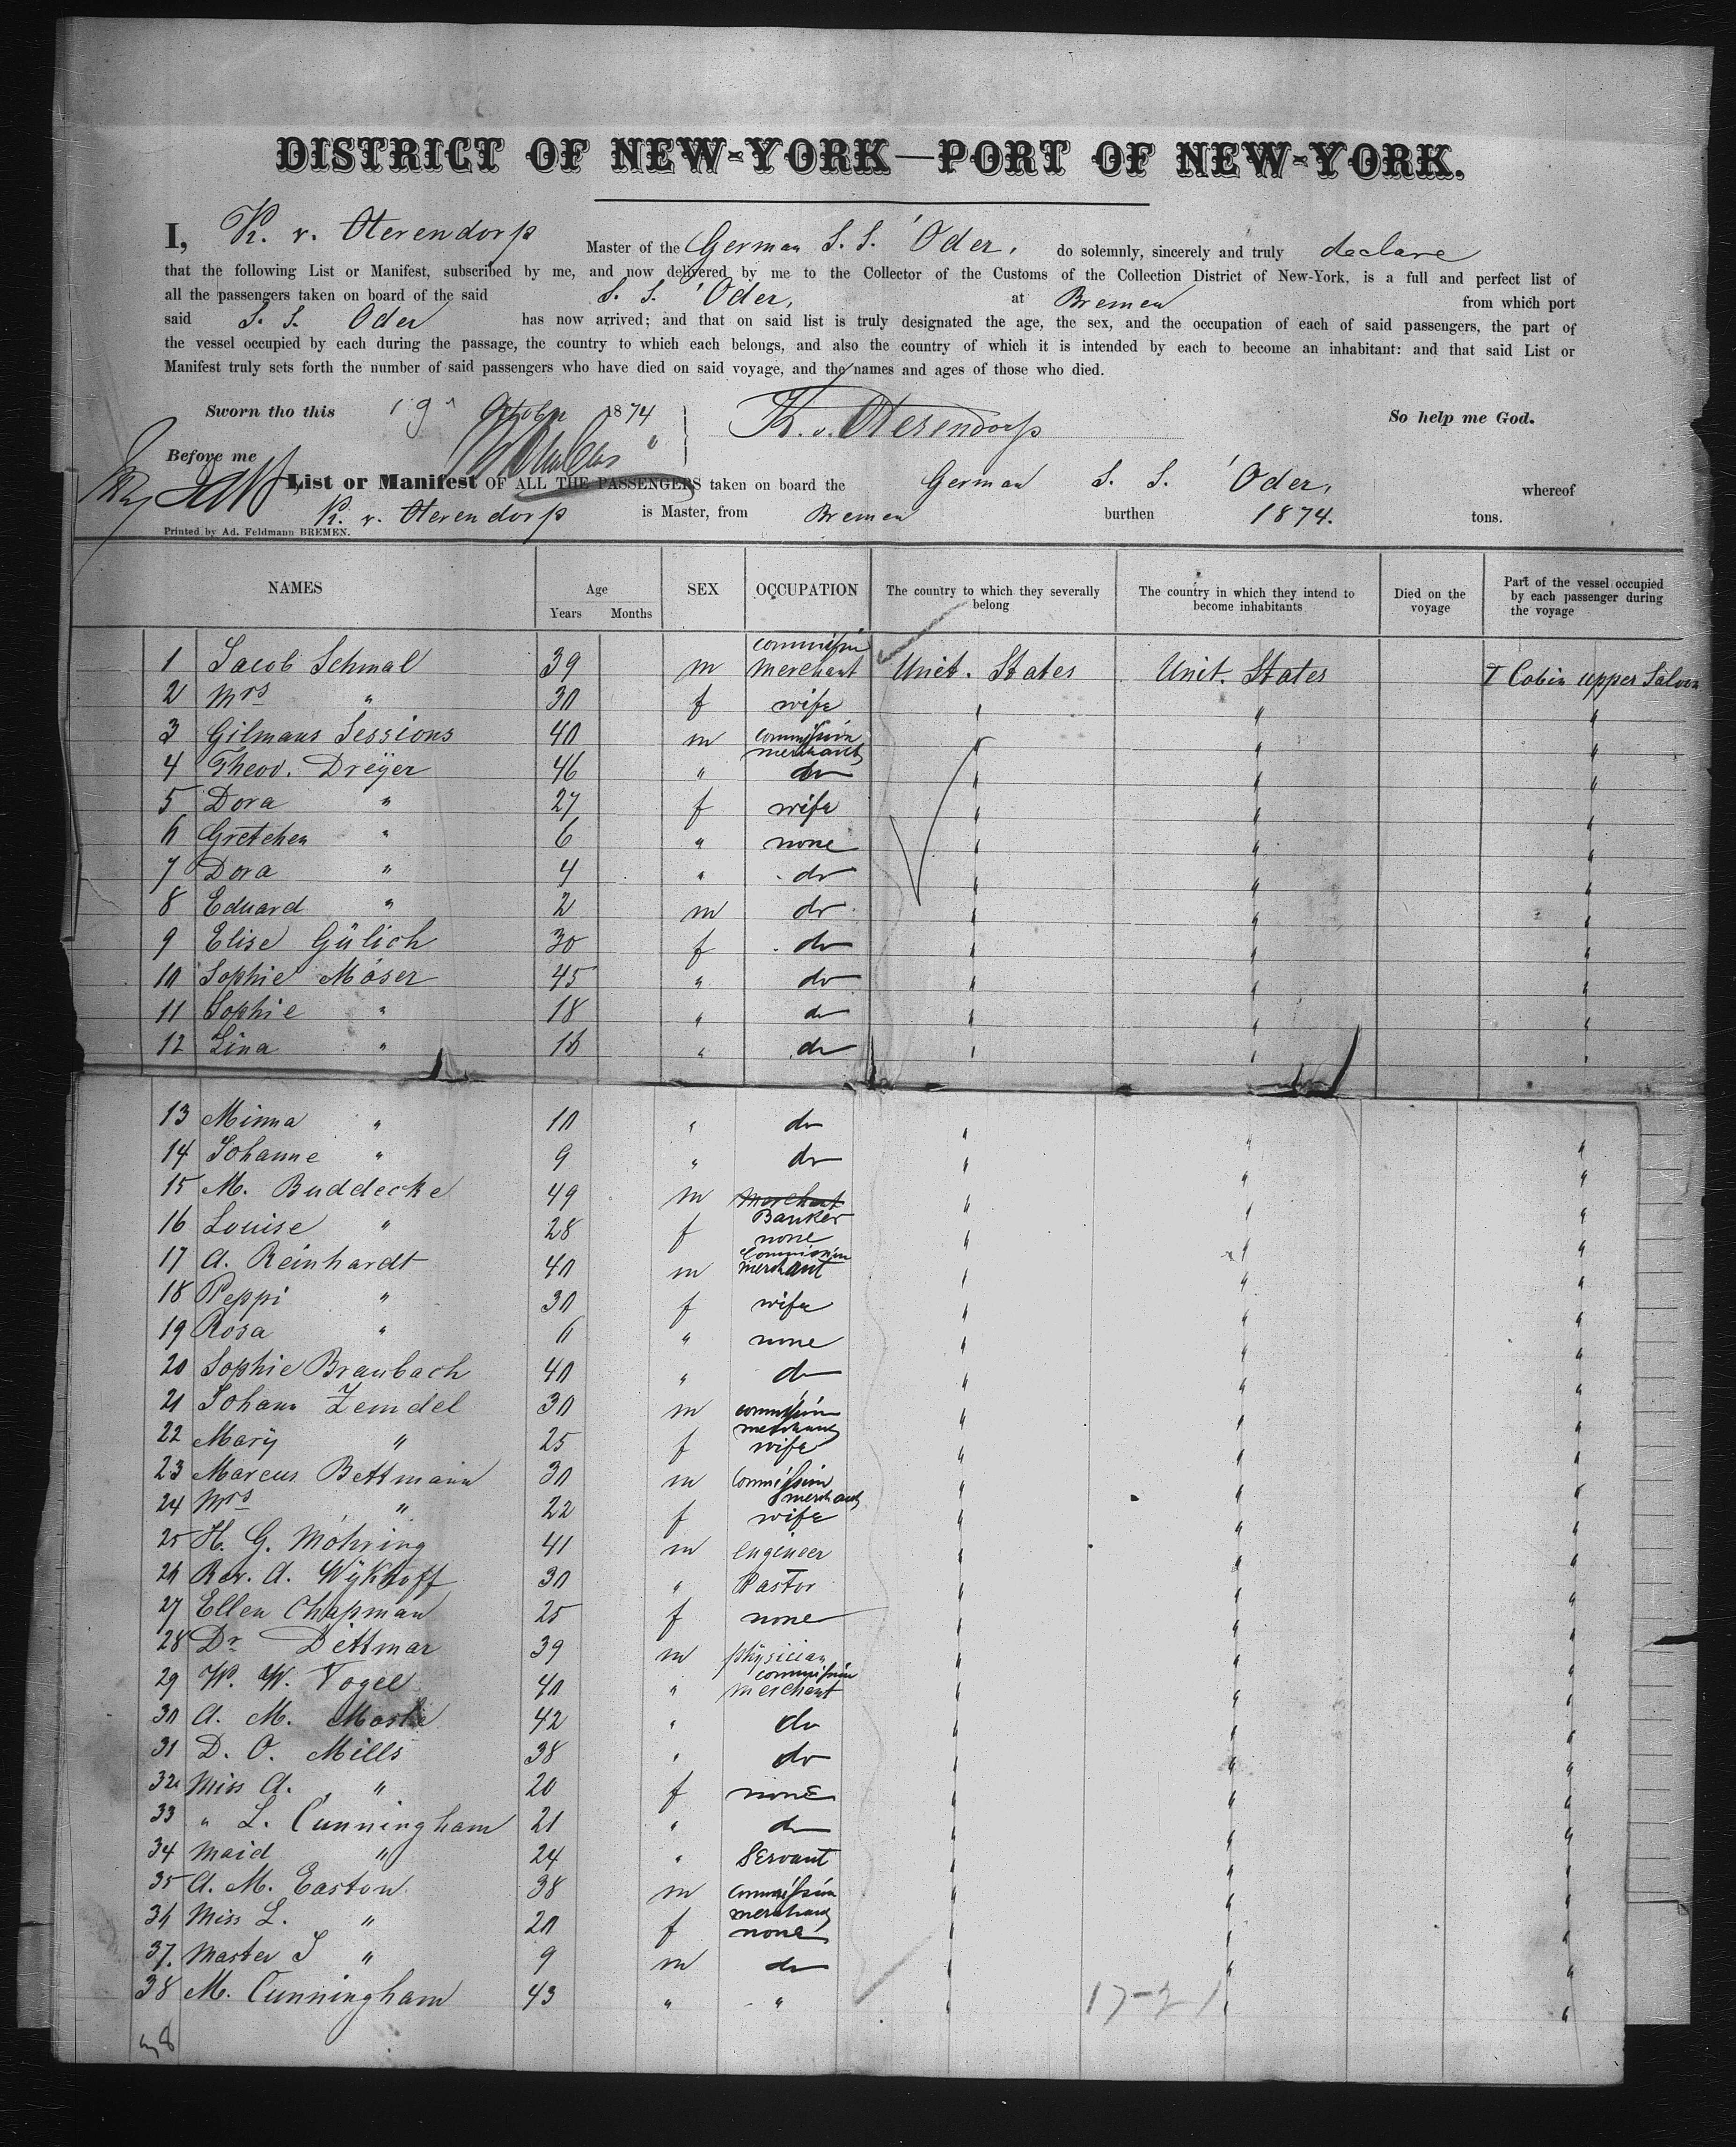 DISTRICT OF NEW-YORK—PORT OF NEW-YORK.
I, K. v. Oterendorp Master of the German S. S. 'Oder, do solemnly, sincerely and truly declare
that the following List or Manifest, subscribed by me, and now delivered by me to the Collector of the Customs of the Collection District of New-York, is a full and perfect list of
all the passengers taken on board of the said S. S. 'Oder, at Bremen from which port
said S. S. Oder has now arrived; and that on said list is truly designated the age, the sex, and the occupation of each of said passengers, the part of
the vessel occupied by each during the passage, the country to which each belongs, and also the country of which it is intended by each to become an inhabitant: and that said List or
Manifest truly sets forth the number of said passengers who have died on said voyage, and the names and ages of those who died.
Sworn tho this 19 October 1874 K. v. Oterendorp So help me God.
Before me
List or Manifest OF ALL THE PASSENGERS taken on board the German S. S. 'Oder, whereof
K. v. Oterendorp is Master, from Bremen burthen 1874. tons.
Printed by Ad. Feldmann BREMEN.
NAMES Age Years Months SEX OCCUPATION The country to which they severally belong The country in which they intend to become inhabitants Died on the voyage Part of the vessel occupied by each passenger during the voyage
1 Jacob Schmal 39 m commission merchant Unit. States Unit. States I Cabin upper Saloon
2 Mrs " 30 f wife " " "
3 Gilmans Sessions 40 m commission merchant " " "
4 Theod. Dreÿer 46 " do " " "
5 Dora " 27 f wife " " "
6 Gretchen " 6 " none " " "
7 Dora " 4 " do " " "
8 Eduard " 2 m do " " "
9 Elise Gülich 30 f do " " "
10 Sophie Möser 45 " do " " "
11 Sophie " 18 " do " " "
12 Lina " 16 " do " " "
13 Minna " 10 " do " " "
14 Johanne " 9 " do " " "
15 M. Buddecke 49 m merchant Banker " " "
16 Louise " 28 f none " " "
17 A. Reinhardt 40 m Commission merchant " " "
18 Peppi " 30 f wife " " "
19 Rosa " 6 " none " " "
20 Sophie Braubach 40 " do " " "
21 Johann Zemdel 30 m commission merchant " " "
22 Marÿ " 25 f wife " " "
23 Marcus Bettmann 30 m Commission merchant " " "
24 Mrs " 22 f wife " " "
25 H. G. Möhring 41 m engineer " " "
26 Rev. A. Wÿkhoff 30 " Pastor " " "
27 Ellen Chapman 25 f none " " "
28 Dr Dittmar 39 m physician " " "
29 W. W. Vogel 40 " commission merchant " " "
30 A. M. Mosle 42 " do " " "
31 D. O. Mills 38 " do " " "
32 Miss A. " 20 f none " " "
33 " L. Cunningham 21 " do " " "
34 Maid " 24 " Servant " " "
35 A. M. Easton 38 m commission merchant " " "
36 Miss L. " 20 f none " " "
37. Master J " 9 m do " " "
38 M. Cunningham 43 " " " " "
17-21